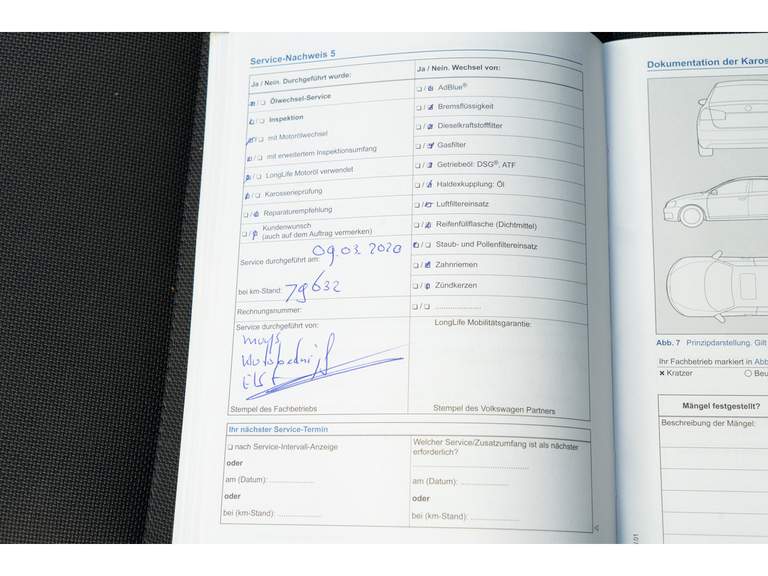 Service-Nachweis 5
Ja / Nein. Durchgeführt wurde:
❏ / ❏ Ölwechsel-Service
❏ / ❏ Inspektion
❏ / ❏ mit Motorölwechsel
❏ / ❏ mit erweitertem Inspektionsumfang
❏ / ❏ LongLife Motoröl verwendet
❏ / ❏ Karosserieprüfung
❏ / ❏ Reparaturempfehlung
❏ / ❏ Kundenwunsch
(auch auf dem Auftrag vermerken)
Service durchgeführt am: 09.03.2020
bei km-Stand: 79632
Rechnungsnummer:
Service durchgeführt von:
Elst
Stempel des Fachbetriebs
Ja / Nein. Wechsel von:
❏ / ❏ AdBlue®
❏ / ❏ Bremsflüssigkeit
❏ / ❏ Dieselkraftstofffilter
❏ / ❏ Gasfilter
❏ / ❏ Getriebeöl: DSG®, ATF
❏ / ❏ Haldexkupplung: Öl
❏ / ❏ Luftfiltereinsatz
❏ / ❏ Reifenfüllflasche (Dichtmittel)
❏ / ❏ Staub- und Pollenfiltereinsatz
❏ / ❏ Zahnriemen
❏ / ❏ Zündkerzen
❏ / ❏ .....................
LongLife Mobilitätsgarantie:
Stempel des Volkswagen Partners
Ihr nächster Service-Termin
❏ nach Service-Intervall-Anzeige
oder
am (Datum): ....................
oder
bei (km-Stand): ....................
Welcher Service/Zusatzumfang ist als nächster
erforderlich?
....................................................
am (Datum): .....................
oder
bei (km-Stand): .....................
Dokumentation der Karos
Abb. 7 Prinzipdarstellung. Gilt
Ihr Fachbetrieb markiert in Abb
× Kratzer
○ Beu
Mängel festgestellt?
Beschreibung der Mängel: